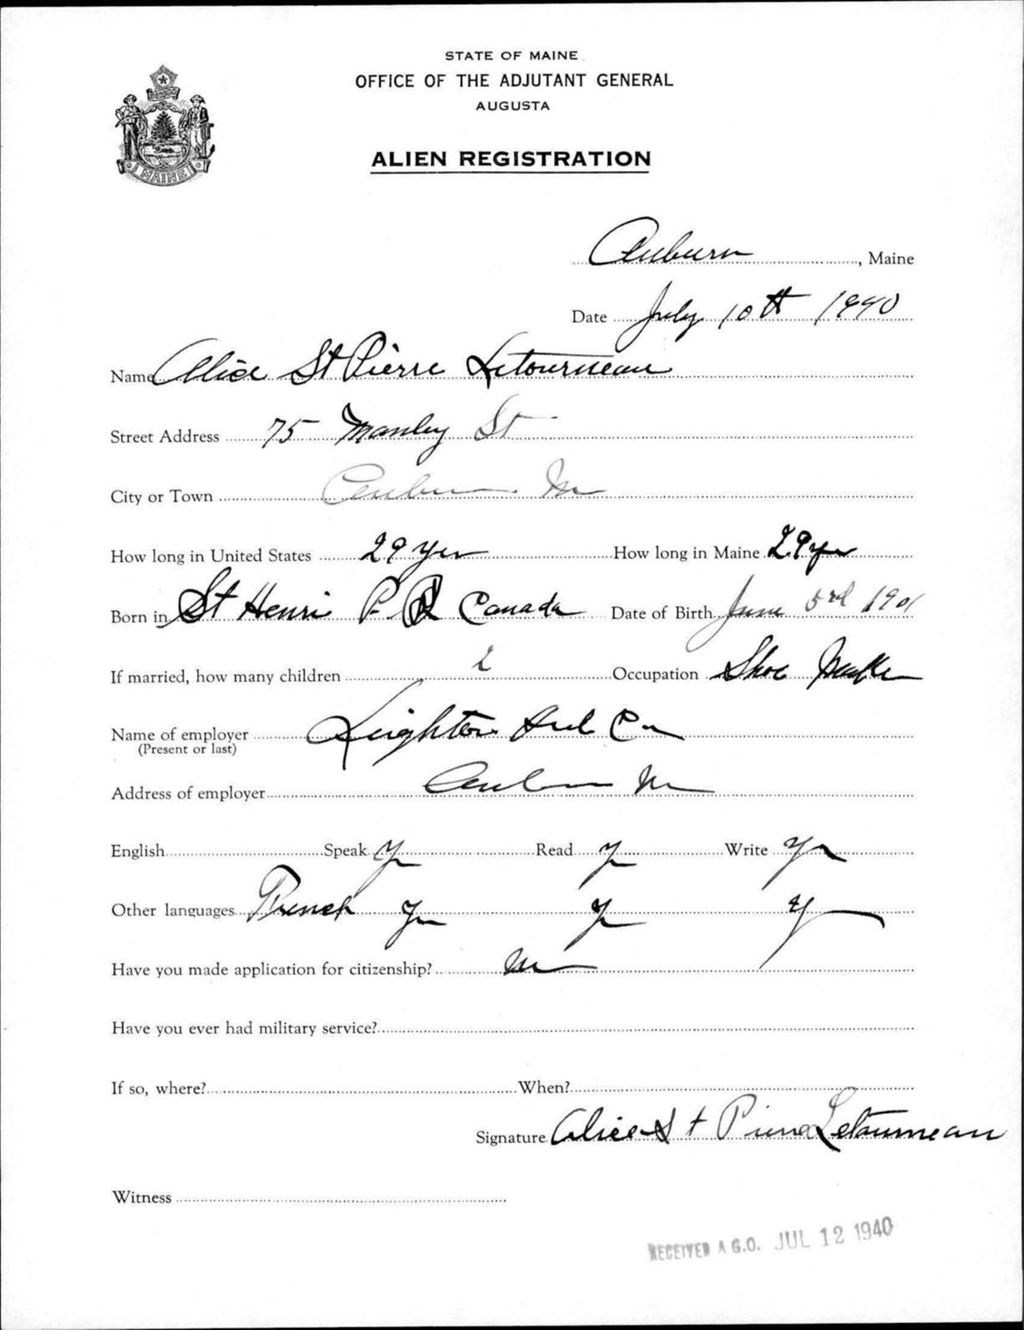 STATE OF MAINE
OFFICE OF THE ADJUTANT GENERAL
AUGUSTA
MAINE
ALIEN REGISTRATION
Auburn, Maine
Date July 10th 1940
Name Alice St Pierre Letourneau
Street Address 75 Manley St
City or Town Auburn Me
How long in United States 29 yrs How long in Maine 29 yrs
Born in St Henri P. Q Canada Date of Birth June 3rd 1901
If married, how many children 2 Occupation Shoe Maker
Name of employer Leighton Co
(Present or last)
Address of employer Auburn Me
English Speak Yes Read Yes Write Yes
Other languages French Yes Yes Yes
Have you made application for citizenship? No
Have you ever had military service?
If so, where? When?
Signature Alice St Pierre Letourneau
Witness
RECEIVED A.G.O. JUL 12 1940